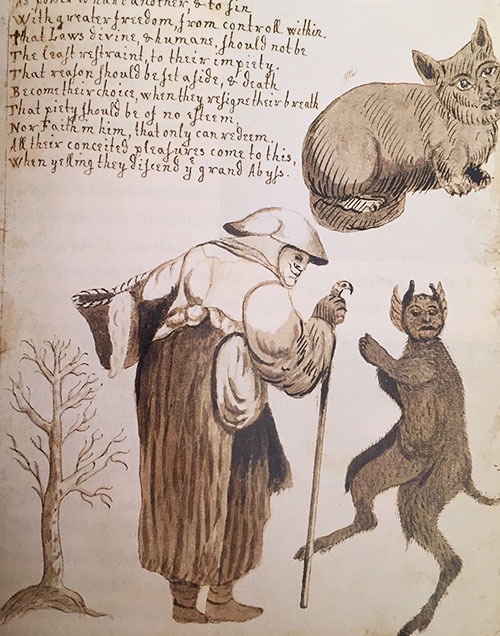 With greater freedom from controll within.
That Laws divine, & humane, should not be
The least restraint, to their impiety.
That reason should be set aside, & death
Become their choice, when they resigne their breath
That piety should be of no esteem,
Nor Faith in him, that only can redeem
All their conceited pleasures come to this,
When yelling they discend yᵉ grand Abyss.